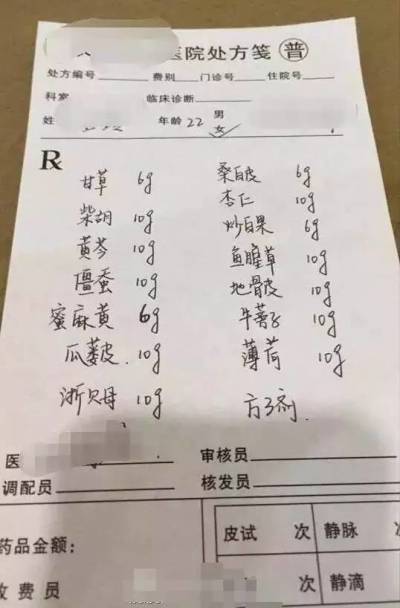 医院处方笺 普
处方编号 费别 门诊号 住院号
科室 临床诊断
姓 年龄 22 男
女
R
甘草 6g 桑白皮 6g
柴胡 10g 杏仁 10g
黄芩 10g 炒白果 6g
僵蚕 10g 鱼腥草 10g
蜜麻黄 6g 地骨皮 10g
瓜蒌皮 10g 牛蒡子 10g
浙贝母 10g 薄荷 10g
医 审核员
调配员 核发员
药品金额: 皮试 次 静脉
收费员 次 静滴